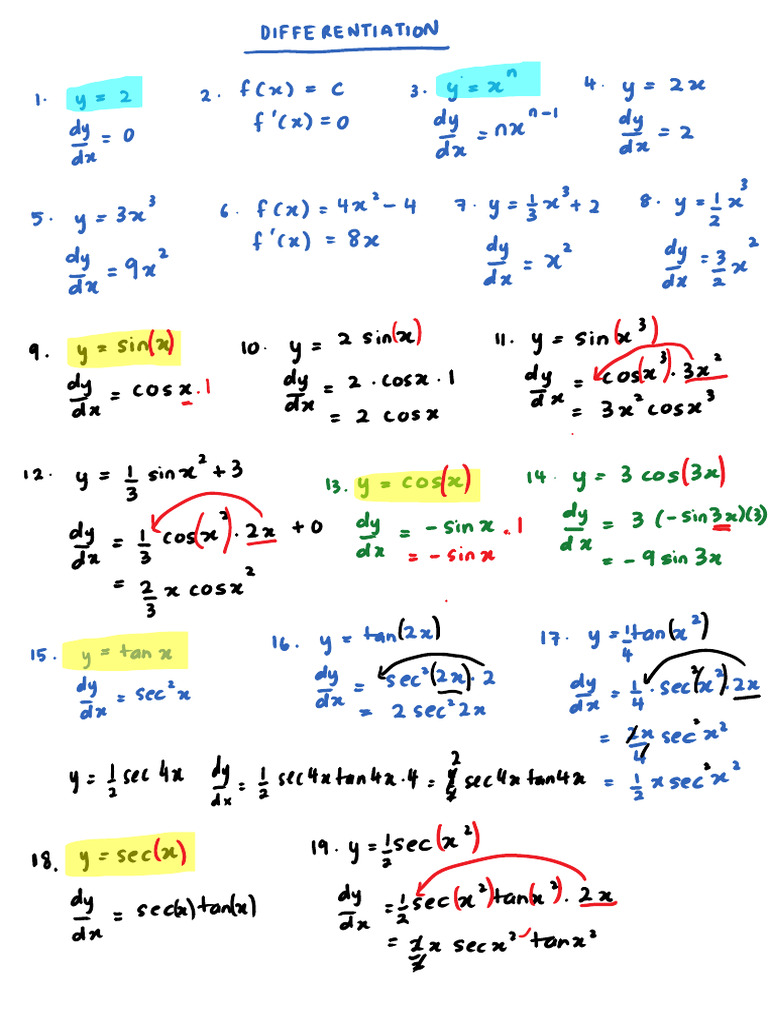 DIFFERENTIATION
1. y = 2
dy/dx = 0
2. f(x) = c
f'(x) = 0
3. y = xⁿ
dy/dx = nxⁿ⁻¹
4. y = 2x
dy/dx = 2
5. y = 3x³
dy/dx = 9x²
6. f(x) = 4x² − 4
f'(x) = 8x
7. y = 1/3 x³ + 2
dy/dx = x²
8. y = 1/2 x³
dy/dx = 3/2 x²
9. y = sin(x)
dy/dx = cos x · 1
10. y = 2 sin(x)
dy/dx = 2 · cos x · 1
= 2 cos x
11. y = sin(x³)
dy/dx = cos(x³) · 3x²
= 3x² cos x³
12. y = 1/3 sin x² + 3
dy/dx = 1/3 cos(x²) · 2x + 0
= 2/3 x cos x²
13. y = cos(x)
dy/dx = − sin x · 1
= − sin x
14. y = 3 cos(3x)
dy/dx = 3 (− sin 3x)(3)
= − 9 sin 3x
15. y = tan x
dy/dx = sec² x
16. y = tan(2x)
dy/dx = sec²(2x) · 2
= 2 sec² 2x
17. y = 1/4 tan(x²)
dy/dx = 1/4 · sec²(x²) · 2x
= 2x/4 sec² x²
= 1/2 x sec² x²
y = 1/2 sec 4x dy/dx = 1/2 sec 4x tan 4x · 4 = 2 4/2 sec 4x tan 4x
18. y = sec(x)
dy/dx = sec(x) tan(x)
19. y = 1/2 sec(x²)
dy/dx = 1/2 sec(x²) tan(x²) · 2x
= 2/2 x sec x² tan x²